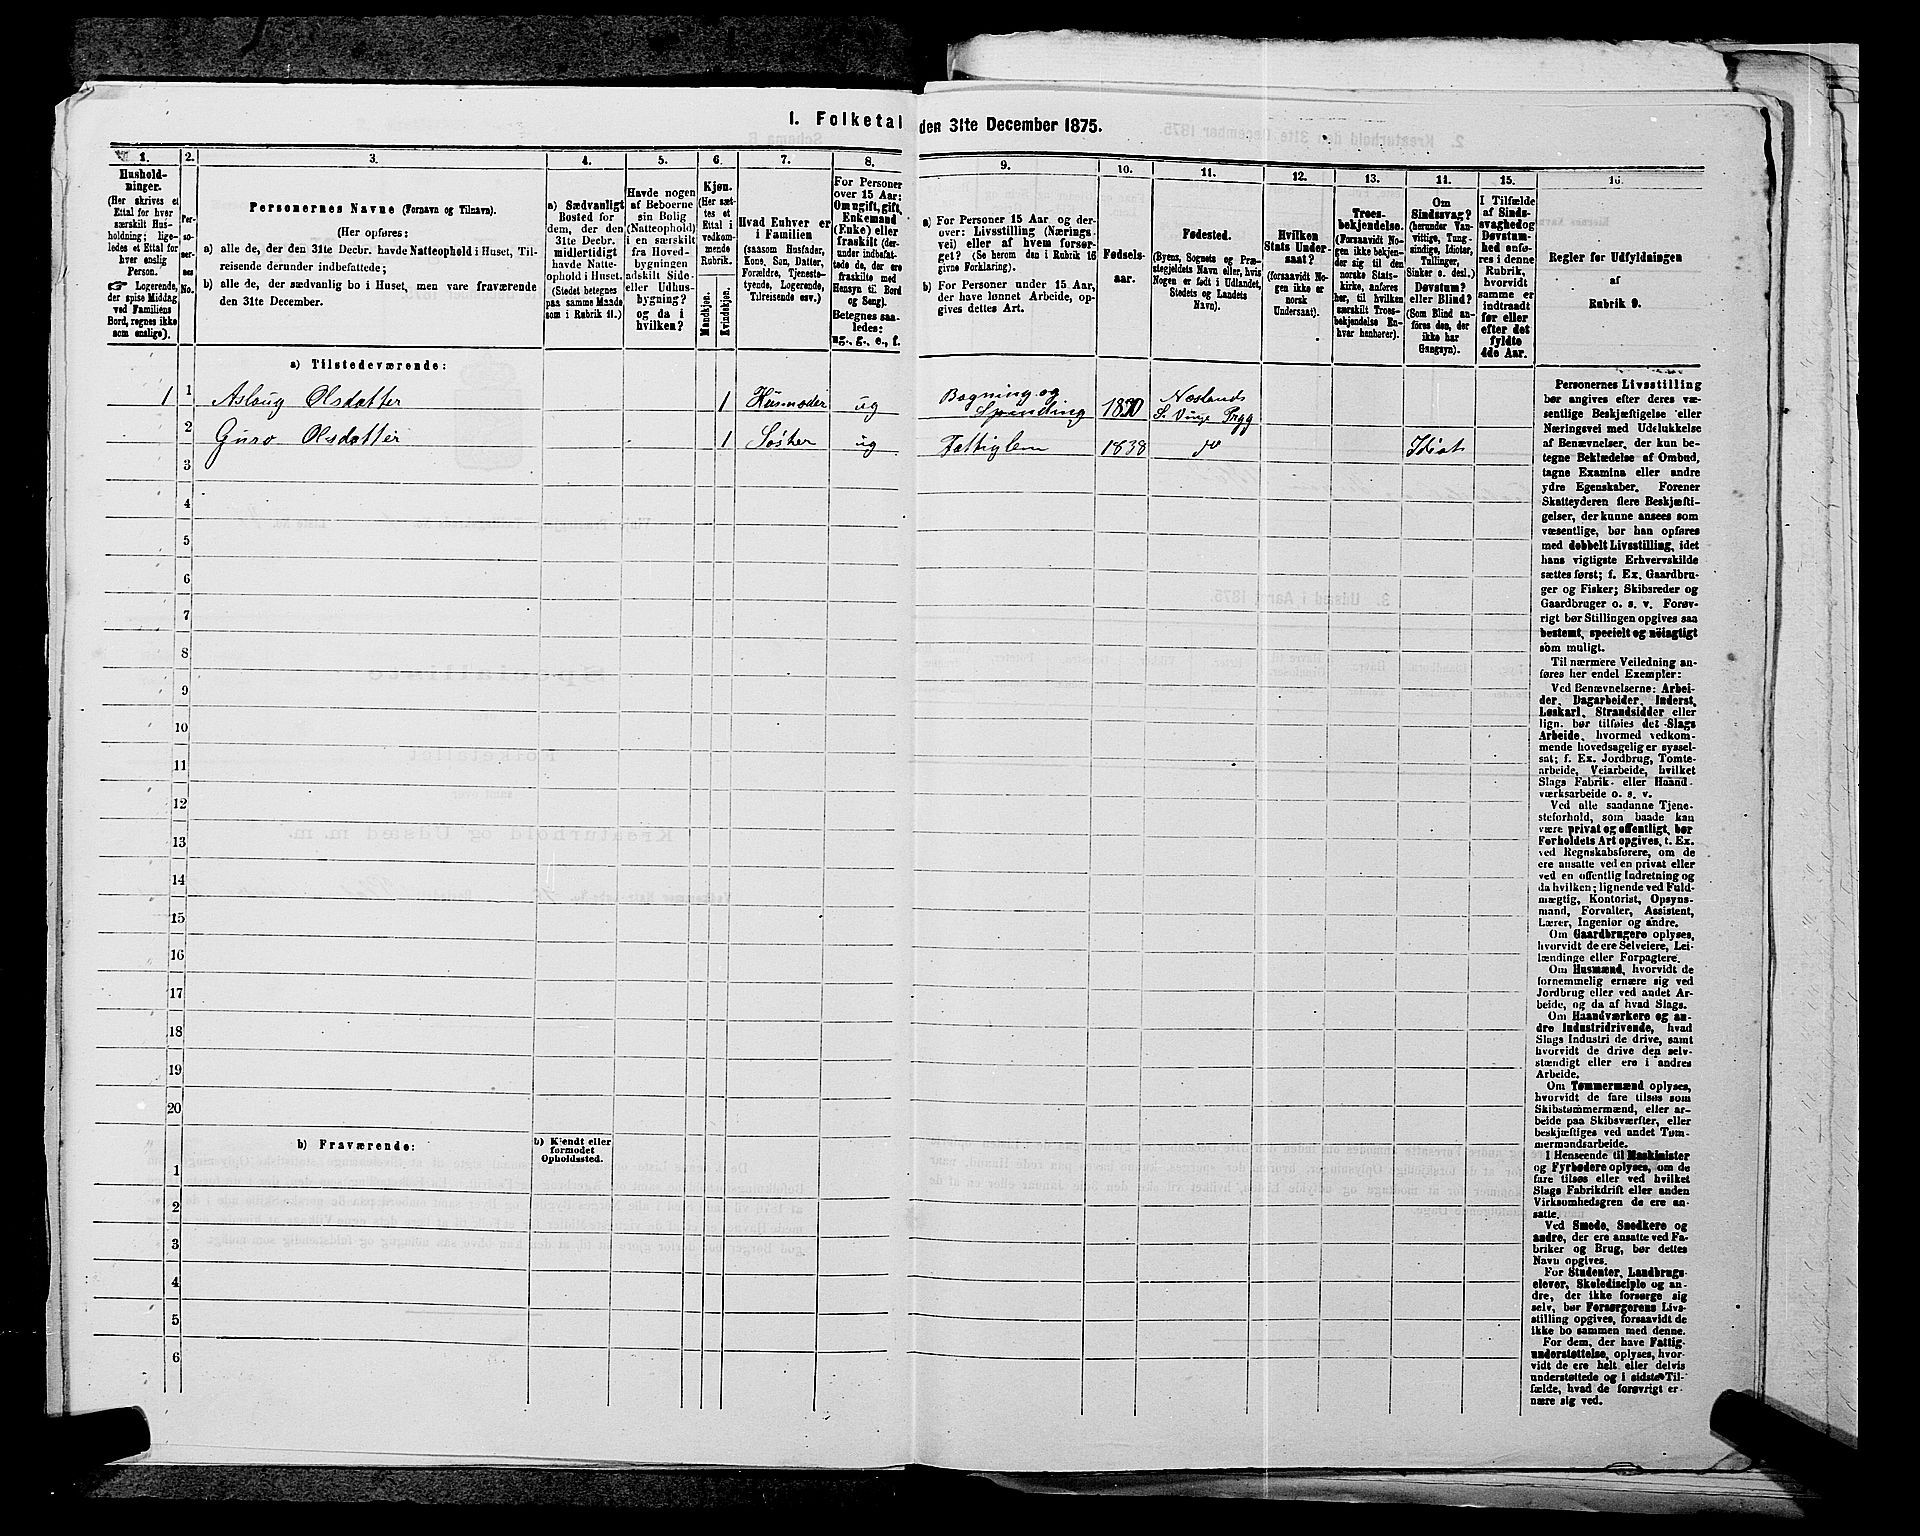 1. Folketal den 31te December 1875.
1.
Hushold-
ninger.
(Her skrives et
Ettal for hver
særskilt Hus-
holdning; lige-
ledes et Ettal for
hver enslig
Person.
Logerende,
der spise Middag
ved Familiens
Bord, regnes ikke
som enslige).
2.
Per-
so-
ner-
nes
No.
3.
Personernes Navne (Fornavn og Tilnavn).
(Her opføres:
a) alle de, der den 31te Decbr. havde Natteophold i Huset, Til-
reisende derunder indbefattede;
b) alle de, der sædvanlig bo i Huset, men vare fraværende
den 31te December.
4.
a) Sædvanligt
Bosted for
dem, der den
31te Decbr.
midlertidigt
havde Natte-
ophold i Huset.
(Stedet betegnes
paa samme Maade
som i Rubrik 11.)
5.
Havde nogen
af Beboerne
sin Bolig
(Natteophold)
i en særskilt
fra Hoved-
bygningen
adskilt Side-
eller Udhus-
bygning?
og da i
hvilken?
6.
Kjøn.
(Her sæt-
tes et
Ettal i
vedkom-
mende
Rubrik.
Mandkjøn.
Kvindekjøn.
7.
Hvad Enhver er
i Familien
(saasom Husfader,
Kone, Søn, Datter,
Forældre, Tjeneste-
tyende, Logerende,
Tilreisende osv.)
8.
For Personer
over 15 Aar:
Om ugift, gift,
Enkemand
(Enke) eller
fraskilt (der-
under indbefat-
tede de, der ere
fraskilte med
Hensyn til Bord
og Seng).
Betegnes saa-
ledes:
ug., g., e., f.
9.
a) For Personer 15 Aar og der-
over: Livsstilling (Nærings-
vei) eller af hvem forsør-
get? (Se herom den i Rubrik 16
givne Forklaring).
b) For Personer under 15 Aar,
der have lønnet Arbeide, op-
gives dettes Art.
10.
Fødsels-
aar.
11.
Fødested.
(Byens, Sognets og Præ-
stegjeldets Navn eller, hvis
Nogen er født i Udlandet,
Stedets og Landets
Navn).
12.
Hvilken
Stats Under-
saat?
(forsaavidt No-
gen ikke er
norsk
Undersaat).
13.
Troes-
bekjendelse.
(Forsaavidt No-
gen ikke bekjen-
der sig til den
norske Stats-
kirke, anføres
her, til hvilken
særskilt Troes-
bekjendelse En-
hver henhører).
14.
Om
Sindssvag?
(herunder Van-
vittige, Tung-
sindige, Idioter,
Tullinger,
Sinker o. desl.)
Døvstum?
eller Blind?
(Som Blind an-
føres den, der
ikke har
Gangsyn).
15.
I Tilfælde
af Sinds-
svaghed og
Døvstum-
hed anfø-
res i denne
Rubrik,
hvorvidt
samme er
indtraadt
før eller
efter det
fyldte
4de Aar.
16.
Regler for Udfyldningen
af
Rubrik 9.
a) Tilstedeværende:
1 1 Aslaug Olsdatter 1 Husmoder ug Bagning og Spinding 1830 Næslands S. Vinje Prgg
2 Guro Olsdatter 1 Søster ug Fattiglem 1838 do Idiot
3
4
5
6
7
8
9
10
11
12
13
14
15
16
17
18
19
20
b) Fraværende:
b) Kjendt eller
formodet
Opholdssted.
1
2
3
4
5
6
Personernes Livsstilling
bør angives efter deres væ-
sentlige Beskjæftigelse eller
Næringsvei med Udelukkelse
af Benævnelser, der kun be-
tegne Beklædelse af Ombud,
tagne Examina eller andre
ydre Egenskaber. Forener
Skatteyderen flere Beskjæfti-
gelser, der kunne ansees som
væsentlige, bør han opføres
med dobbelt Livsstilling, idet
hans vigtigste Erhvervskilde
sættes først; f. Ex. Gaardbru-
ger og Fisker; Skibsreder og
Gaardbruger o. s. v. Forøv-
rigt bør Stillingen opgives saa
bestemt, specielt og nöiagtigt
som muligt.
Til nærmere Veiledning an-
føres her endel Exempler:
Ved Benævnelserne: Arbei-
der, Dagarbeider, Inderst,
Løskarl, Strandsidder eller
lign. bør tilføies det Slags
Arbeide, hvormed vedkom-
mende hovedsagelig er syssel-
sat; f. Ex. Jordbrug, Tomte-
arbeide, Veiarbeide, hvilket
Slags Fabrik- eller Haand-
værksarbeide o. s. v.
Ved alle saadanne Tjene-
steforhold, som baade kan
være privat og offentligt, bør
Forholdets Art opgives, t. Ex.
ved Regnskabsførere, om de
ere ansatte ved en privat eller
ved en offentlig Indretning og
da hvilken; lignende ved Fuld-
mægtig, Kontorist, Opsyns-
mand, Forvalter, Assistent,
Lærer, Ingeniør og andre.
Om Gaardbrugere oplyses,
hvorvidt de ere Selveiere, Lei-
lændinge eller Forpagtere.
Om Husmænd, hvorvidt de
fornemmelig ernære sig ved
Jordbrug eller ved andet Ar-
beide, og da af hvad Slags.
Om Haandværkere og an-
dre Industridrivende, hvad
Slags Industri de drive, samt
hvorvidt de drive den selv-
stændigt eller ere i andres
Arbeide.
Om Tømmermænd oplyses,
hvorvidt de fare tilsøs som
Skibstømmermænd, eller ar-
beide paa Skibsværfter, eller
beskjæftiges ved andet Tøm-
mermandsarbeide.
I Henseende til Maskinister
og Fyrbødere oplyses, om de
fare tilsøs eller ved hvilket
Slags Fabrikdrift eller anden
Virksomhedsgren de ere an-
satte.
Ved Smede, Snedkere og
andre, der ere ansatte ved Fa-
briker og Brug, bør dettes
Navn opgives.
For Studenter, Landbrugs-
elever, Skoledisciple og an-
dre, der ikke forsørge sig
selv, bør Forsørgerens Livs-
stilling opgives, forsaavidt de
ikke bo sammen med denne.
For dem, der have Fattig-
understøttelse, oplyses, hvor-
vidt de ere helt eller delvis
understøttede og i sidste Til-
fælde, hvad de forøvrigt er-
nære sig ved.